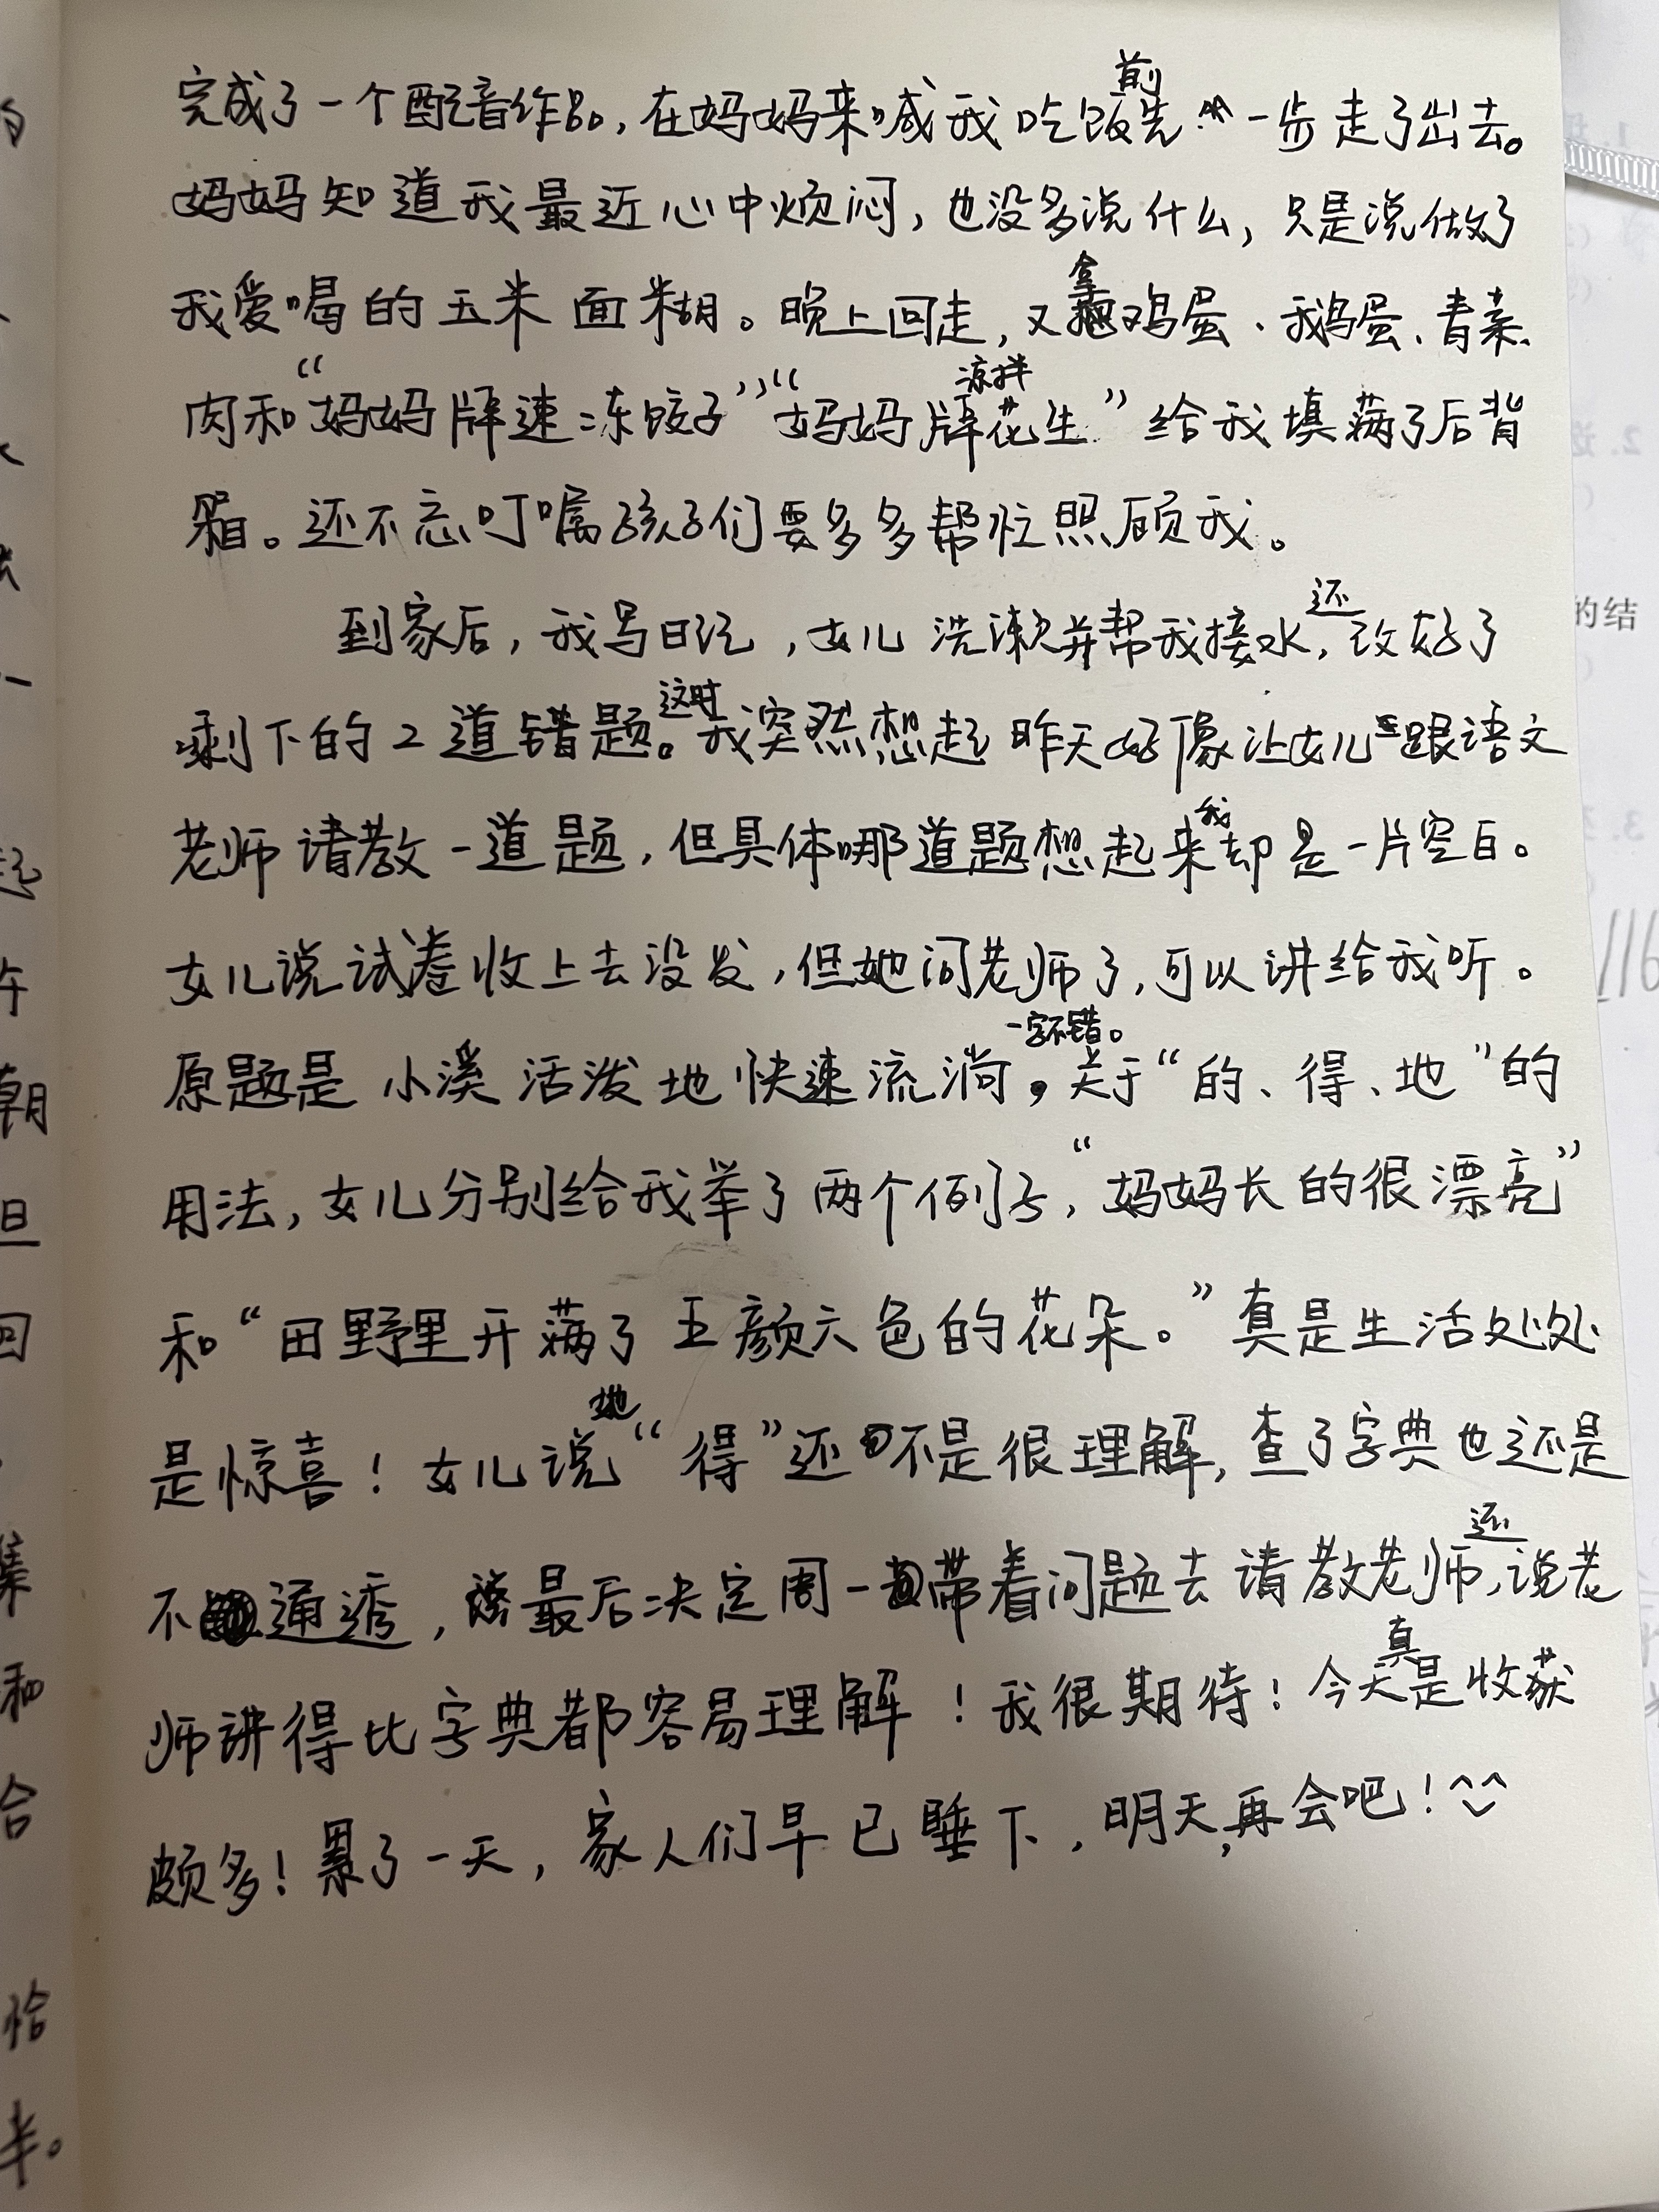 完成了一个配音作品,在妈妈来喊我吃饭前先一步走了出去。
妈妈知道我最近心中烦闷,也没多说什么,只是说做了
我爱喝的玉米面糊。晚上回走,又拿鸡蛋、鹅蛋、青菜、
肉和“妈妈牌速冻饺子”“妈妈牌凉拌花生”给我填满了后背
箱。还不忘叮嘱孩子们要多多帮忙照顾我。
到家后,我写日记,女儿洗漱并帮我接水,还改好了
剩下的2道错题。这时我突然想起昨天好像让女儿跟语文
老师请教一道题,但具体哪道题想起来我却是一片空白。
女儿说试卷收上去没发,但她问老师了,可以讲给我听。
原题是小溪活泼地快速流淌,一字不错。关于“的、得、地”的
用法,女儿分别给我举了两个例子,“妈妈长的很漂亮”
和“田野里开满了五颜六色的花朵。”真是生活处处
是惊喜!女儿说地“得”还不是很理解,查了字典也还是
不通透,最后决定周一带着问题去请教老师,还说老
师讲得比字典都容易理解!我很期待!今天真是收获
颇多!累了一天,家人们早已睡下,明天,再会吧!^‿^
的结
2.
3.
116